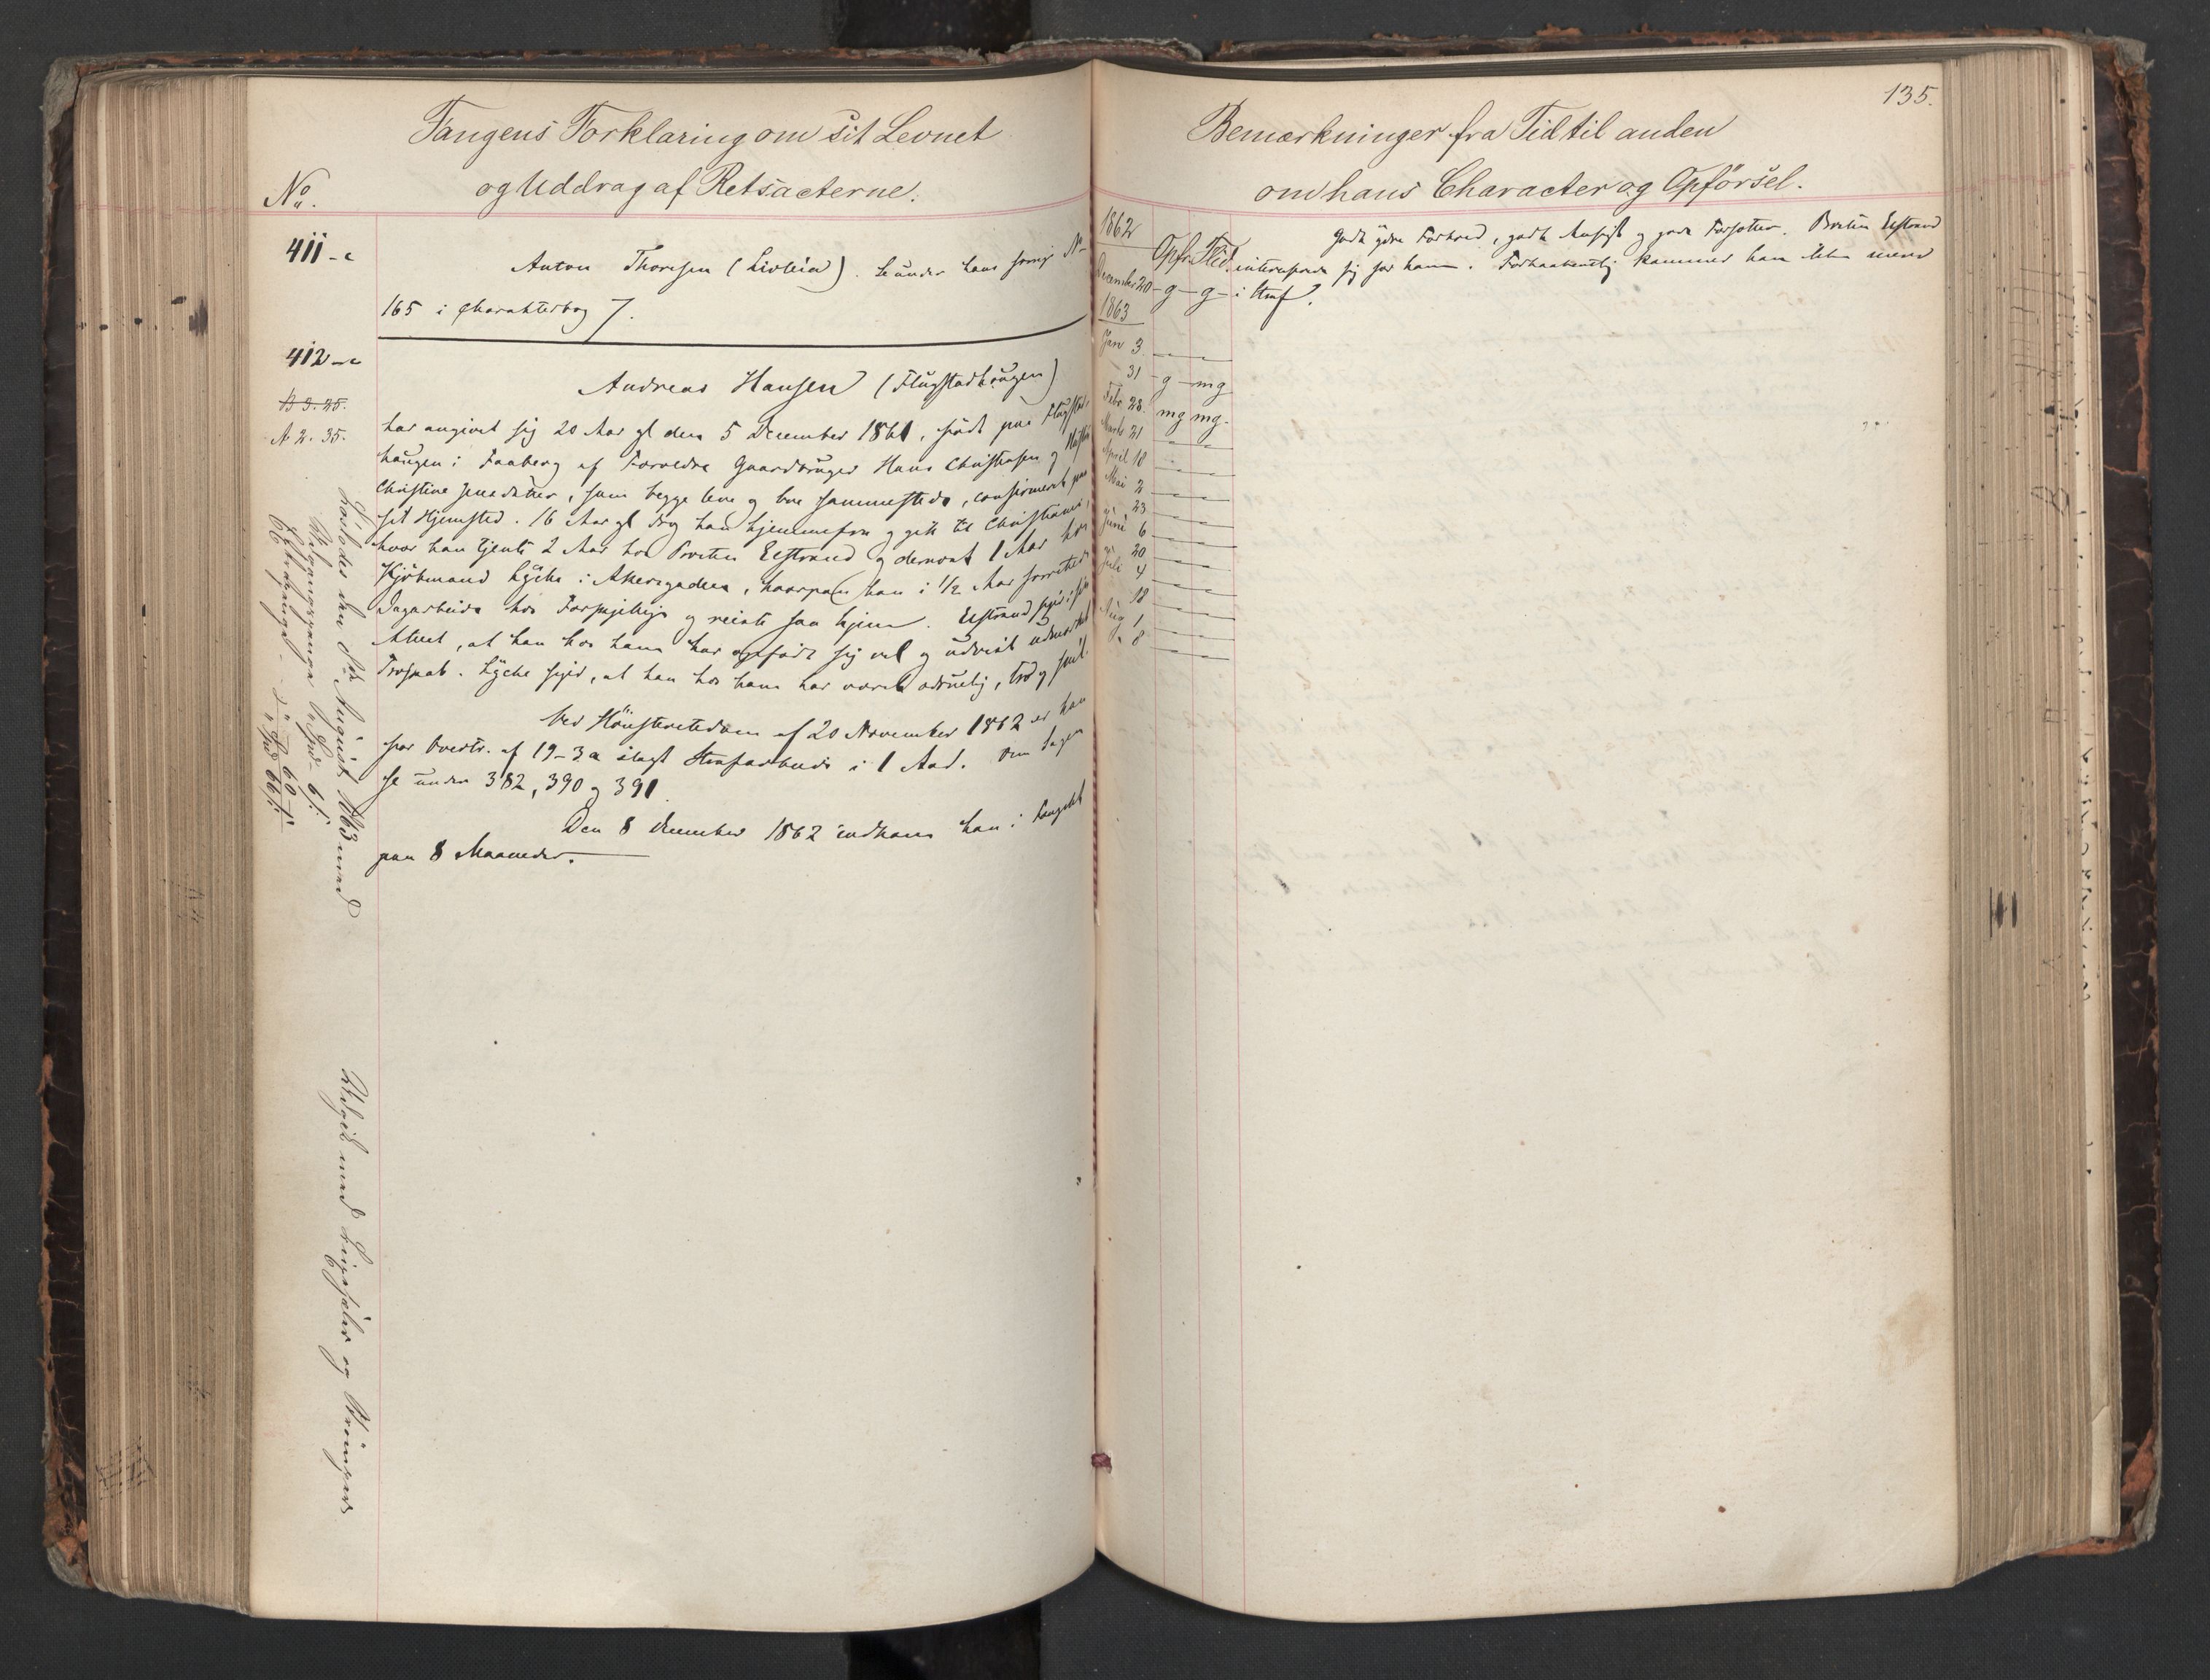 Fangens Forklaring om sit Levnet
og Uddrag af Retsacterne.
No.
411-c
Anton Thoresen (Livlein). Se under hans forrige No
165 i Charakterbog 7.
412-c
B 3. 25.
A 2. 35.
Andreas Hansen (Flugstadhaugen)
har angivet sig 20 Aar gl den 5 December 1861, født paa Flugstad-
haugen i Faaberg af Forældre Gaardbruger Hans Christiansen og Hustru
Christine Jensdatter, som begge leve og boe sammesteds, confirmeret paa
sit Hjemsted. 16 Aar gl drog han hjemmefra og gik til Christiania,
hvor han tjente 2 Aar hos Eckstrand og dernæst 1 Aar hos
Kjøbmand Lyche i Akersgaden, hvorpaa han i 1/2 Aar forrettede
Dagarbeide hos og reiste saa hjem. Eckstrand siger i sin
Attest, at han hos ham har opført sig vel og udvist udmærket
Troskab. Lyche siger, at han hos ham har været ædruelig, tro og snil.
Ved Høiesteretsdom af 20 November 1862 er han
for Overtr. af 19-3a ilagt Strafarbeide i 1 Aar. Om Sagen
se under 382, 390 og 391.
Den 8 December 1862 indkom han i Fængslet
paa 8 Maaneder.
Løslodes den 8de August 1863 med
Udgangspenge Spd. 6 ß.
Extrapenge - " " 60 - ß
" Spd 66 ß.
Udgik med Lugepæler og Strømper
135.
Bemærkninger fra Tid til anden
om hans Character og Opførsel.
1862
Opf. Flid.
December 20 - g - g -
1863
Jan 3. — —
- 31 - g - mg
Febr 28. mg mg.
Marts 21 — —
April 18 — —
Mai 2 — —
" 23 — —
Juni 6 — —
" 20 — —
Juli 4 — —
" 18 — —
Aug 1 — —
" 8 — —
Godt ydre Forhold, godt Ansigt og gode Forsætter. Eckstrand
interesserer sig for ham. Forhaabentlig kommer han ikke mere
i Straf.